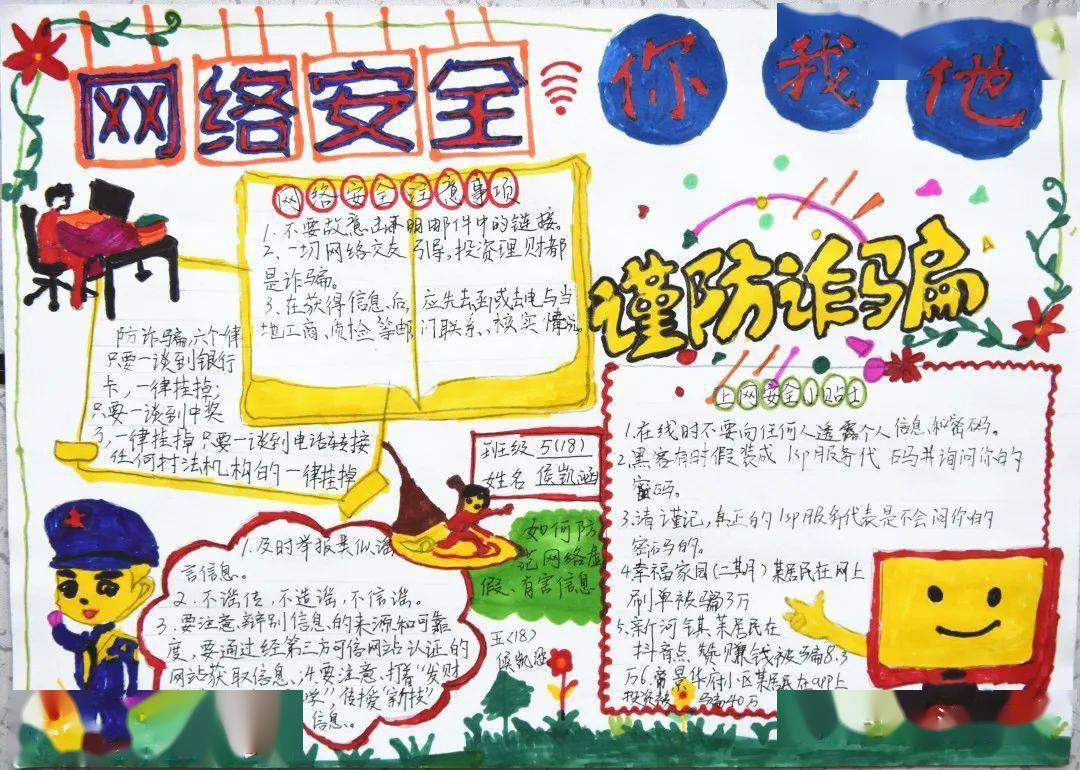 网络安全
你 我 他
网络安全注意事项
1.不要故意击不明邮件中的链接。
2、一切网络交友 引导,投资理财都
是诈骗。
3.在获得信息后,应先去函或去电与当
地工商、质检等部门联系、核实情况
防诈骗,六个律
只要一谈到银行
卡,一律挂掉;
只要一谈到中奖
一律挂掉只要一谈到电话转接
任何打法机构的一律挂掉
谨防诈骗
班级 5(18)
姓名 侯凯涵
上网安全小贴士
1.在线时不要向任何人透露个人信息和密码。
2.黑客有时假装成 Isp服务代 码并询问你的
密码。
3.请谨记,真正的Isp服务代表是不会问你的
密码的。
4.幸福家园(二期)某居民在网上
刷单被骗3万
5.新河镇某居民在
抖音点赞赚钱被骗8.3
万6.常景华府小区某居民在app上
投资被 骗40万
如何防
范网络虚
假、有害信息
1.及时举报类似谣
言信息。
2.不谣传,不造谣,不信谣。
3.要注意辩别信息的来源和可靠
度,要通过经第三方可信网站认证的
网站获取信息、;4.要注意,打着“发财
学”,传授“新技
信息。
五(18)
侯凯涵